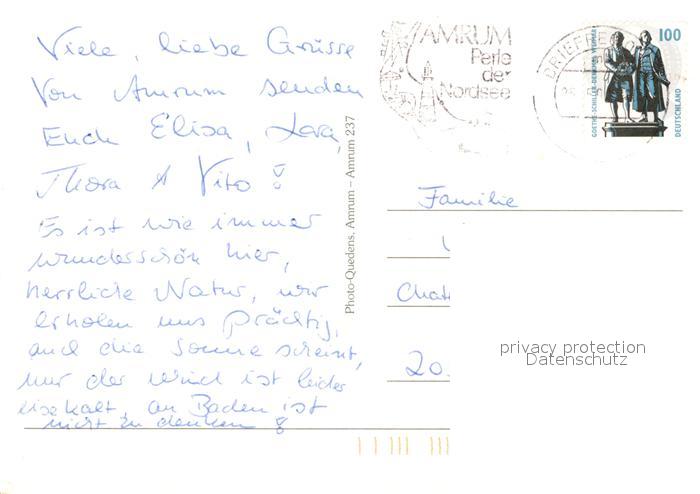 Viele, liebe Grüsse
von Amrum senden
Euch Elisa, Lara,
Thora & Vito!
Es ist wie immer
wunderschön hier,
herrliche Natur, wir
erholen uns prächtig,
und die Sonne scheint,
nur der Wind ist leider
eiskalt, an Baden ist
nicht zu denken!
Photo-Quedens, Amrum – Amrum 237
AMRUM
Perle
der
Nordsee
GOETHE-SCHILLER-DENKMAL WEIMAR
100
DEUTSCHLAND
Familie
20
privacy protection
Datenschutz